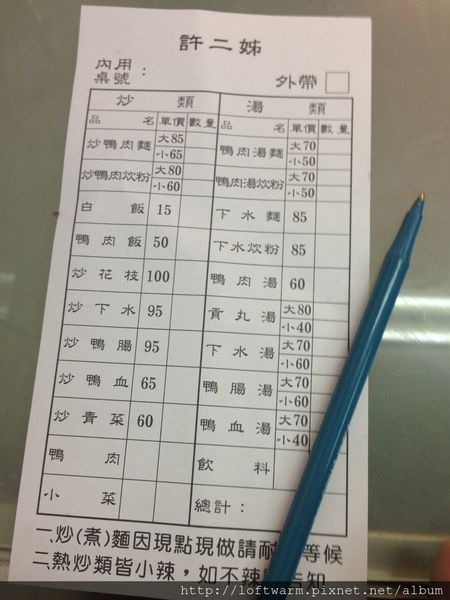 許二姊
內用
桌號：
外帶
炒類 湯類
品名 單價 數量 品名 單價 數量
炒鴨肉麵 大85 小65 鴨肉湯麵 大70 小50
炒鴨肉炊粉 大80 小60 鴨肉湯炊粉 大70 小50
白飯 15 下水麵 85
鴨肉飯 50 下水炊粉 85
炒花枝 100 鴨肉湯 60
炒下水 95 貢丸湯 大80 小40
炒鴨腸 95 下水湯 大70 小60
炒鴨血 65 鴨腸湯 大70 小60
炒青菜 60 鴨血湯 大70 小40
鴨肉 飲料
小菜 總計：
一.炒(煮)麵因現點現做請耐 等候
二.熱炒類皆小辣，如不辣 告知
http://loftwarm.pixnet.net/album